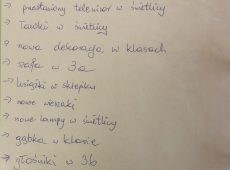 → przestawiony telewizor w świetlicy
→ Ławki w świetlicy
→ nowa dekoracja w klasach
→ szafa w 3a
→ książki w sklepiku
→ nowe wieszaki
→ nowe lampy w świetlicy
→ gąbka w klasie
→ głośniki w 3b